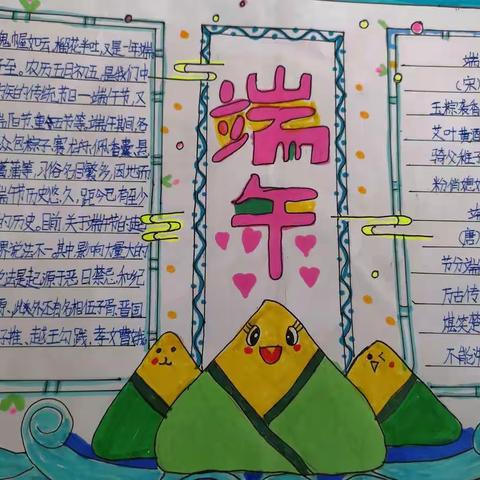 端午
槐幄如云,榴花半吐,又是一年端
午至。农历五月初五,是我们中
的传统节日—端午节,又
端阳节,重五节等,端午期间,各
众包粽子,赛龙舟,佩香囊,悬
菖蒲等,习俗名目繁多,因地而
端午节历史悠久,距今已有至少
的历史。目前,关于端午节的由
界说法不一,其中影响力量大的
说法是起源于恶日禁忌和纪
原、此外还有名相伍子胥,晋国
介子推、越王勾践,孝女曹娥
端
(宋)
玉粽袭香
艾叶黄酒
骑父稚子
粉俏媳
端
(唐)
节分端
万古传
堪笑楚
不能洗